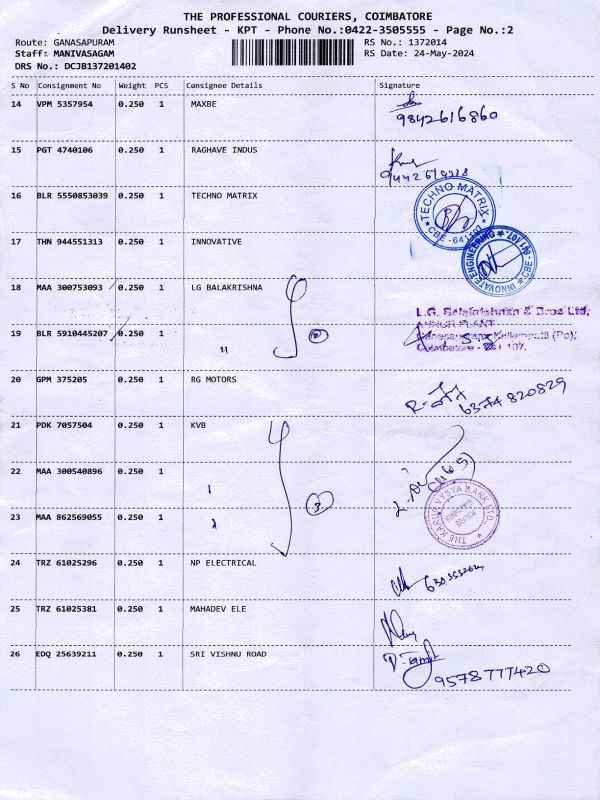 THE PROFESSIONAL COURIERS, COIMBATORE
Delivery Runsheet - KPT - Phone No.:0422-3505555 - Page No.:2
Route: GANASAPURAM RS No.: 1372014
Staff: MANIVASAGAM RS Date: 24-May-2024
DRS No.: DCJB137201402
S No Consignment No Weight PCS Consignee Details Signature
14 VPM 5357954 0.250 1 MAXBE
9842616860
15 PGT 4740106 0.250 1 RAGHAVE INDUS
16 BLR 5550853039 0.250 1 TECHNO MATRIX
TECHNO MATRIX
CBE-641107
17 THN 944551313 0.250 1 INNOVATIVE
INNOVATE ENGINEERING
CBE - 641 107
18 MAA 300753093 0.250 1 LG BALAKRISHNA
L.G. Balakrishnan & Bros Ltd,
ANNUR PLANT
19 BLR 5910445207 0.250 1 " 2
Coimbatore - 641 107.
20 GPM 375205 0.250 1 RG MOTORS
6374820829
21 PDK 7057504 0.250 1 KVB
22 MAA 300540896 0.250 1
3
THE KARUR VYSYA BANK LTD.
23 MAA 862569055 0.250 1
24 TRZ 61025296 0.250 1 NP ELECTRICAL
25 TRZ 61025381 0.250 1 MAHADEV ELE
26 EDQ 25639211 0.250 1 SRI VISHNU ROAD
9578777420